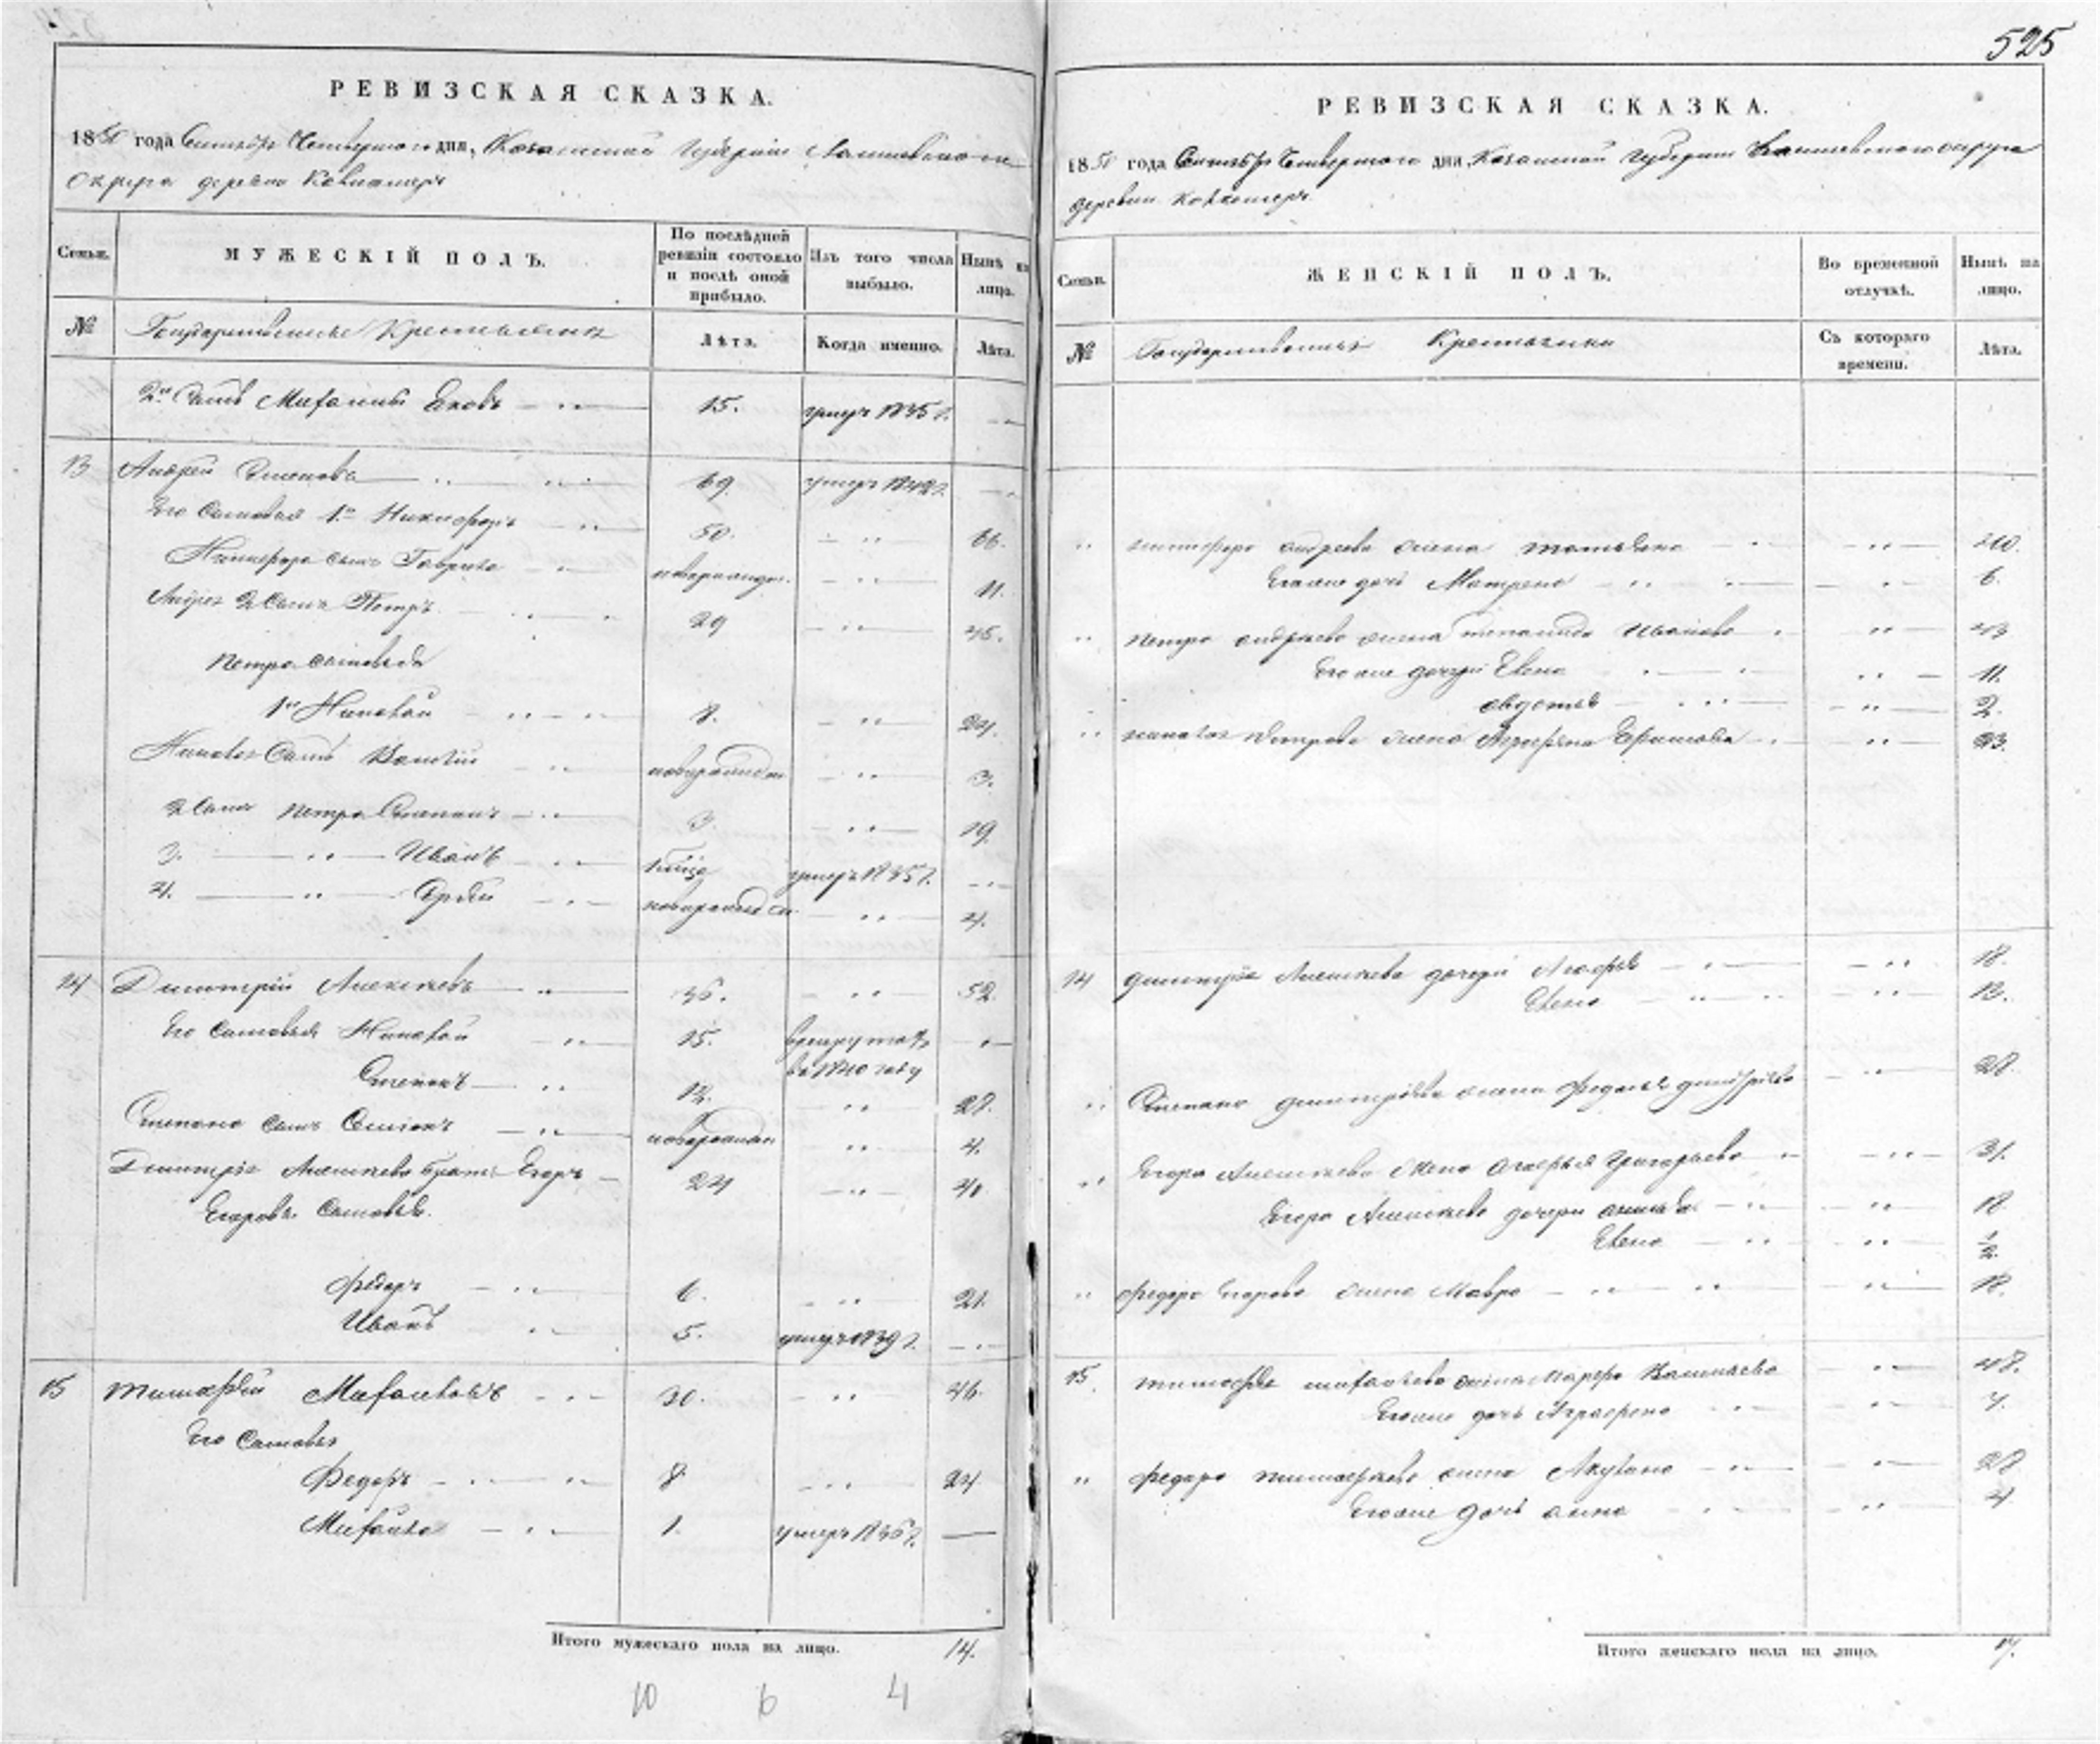 525
РЕВИЗСКАЯ СКАЗКА.
1850 года Сентября Четвертаго дня, Казанской Губернии Лаишевскаго
Округа деревни
Семьи.
МУЖЕСКІЙ ПОЛЪ.
По послѣдней ревизіи состояло и послѣ оной прибыло.
Изъ того числа выбыло.
Нынѣ на лицо.
№
Государственные Крестьяне
Лѣта.
Когда именно.
Лѣта.
2й Сынъ 15. умеръ 1835 г.
13 Андрей Семеновъ 69. умеръ 1842 г.
Его Сыновья 1й Никифоръ 50. 66.
Никифора сынъ Гаврила новорожден. 11.
Андрея 2 Сынъ Петръ 29 45.
Петра сыновья
1й Николай 8. 24.
Николая Сынъ Василий новорожден 3.
2 Сынъ Петра Степанъ 3. 19.
3. Иванъ умеръ 1835 г.
4. новорожден 4.
14 Дмитрій Алексѣевъ 36. 52.
Его Сыновья Николай 15. в рекруты
в 1840 году
Степанъ 12. 28.
Степана сынъ Семенъ новорожден 4.
Дмитрія Алексѣева братъ Егоръ 24 40
Егоровы Сыновья.
Федоръ 6. 21.
Иванъ 5. умеръ 1839 г.
15 Тимофей Михайловъ 30. 46.
Его Сыновья
Федоръ 8 24
Михайла 1. умеръ 1836 г.
Итого мужескаго пола на лицо. 14.
10 6 4
РЕВИЗСКАЯ СКАЗКА.
1850 года Сентября Четвертаго дня, Казанской Губернии Лаишевскаго округа
деревни
Семьи.
ЖЕНСКІЙ ПОЛЪ.
Во временной отлучкѣ.
Нынѣ на лицо.
№
Государственные Крестьянки
Съ котораго времени.
Лѣта.
Никифора Андреева жена Татьяна
Его же дочь Матрена 6.
Петра Андреева жена Иванова 43
Его же дочери Елена 11.
Авдотья 2.
Николая Петрова жена Аграфена Ефимова 23.
14 Дмитрія Алексѣева дочери 18.
Елена 13.
Степана Дмитріева жена 28
Егора Алексѣева жена Григорьева 31.
Егора Алексѣева дочери 18
Елена 1/2
Федора Егорова жена Мавра 18.
15. Тимофея Михайлова жена Марфа Васильева 48.
Его же дочь Аграфена 7.
Федора Тимофеева жена Акулина 28
Его же дочь Анна 4
Итого женскаго пола на лицо. 17.